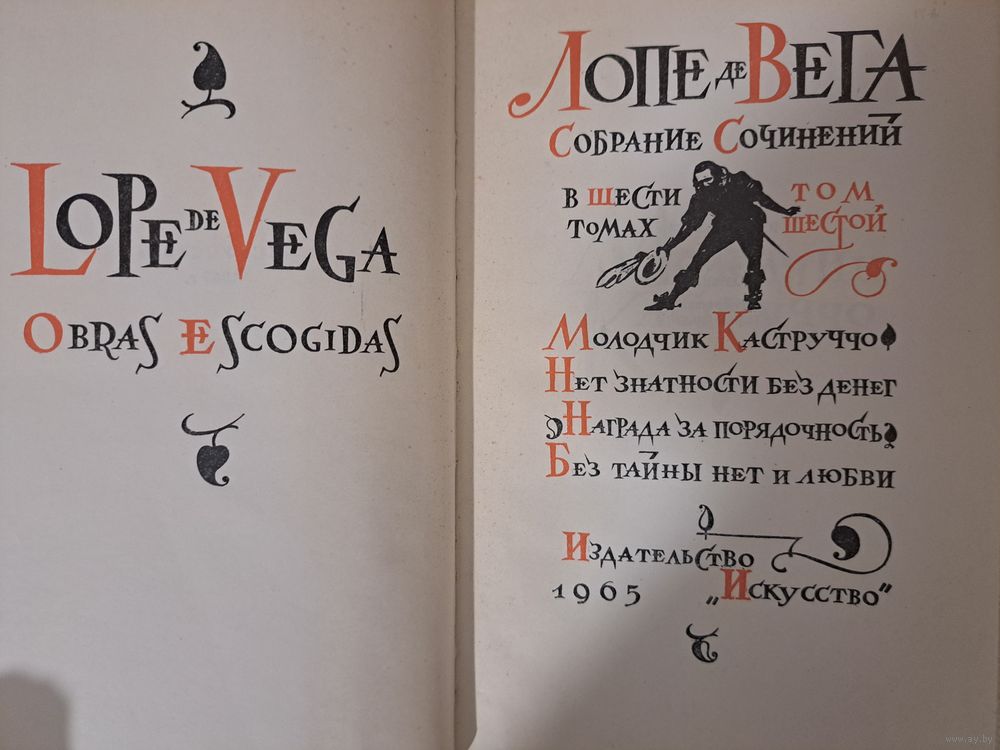 LOPE DE VEGA
OBRAS ESCOGIDAS
ЛОПЕ ДЕ ВЕГА
СОБРАНИЕ СОЧИНЕНИЙ
В ШЕСТИ
ТОМАХ
ТОМ
ШЕСТОЙ
МОЛОДЧИК КАСТРУЧЧО
НЕТ ЗНАТНОСТИ БЕЗ ДЕНЕГ
НАГРАДА ЗА ПОРЯДОЧНОСТЬ
БЕЗ ТАЙНЫ НЕТ И ЛЮБВИ
ИЗДАТЕЛЬСТВО
1965 „ИСКУССТВО"
www.ay.by